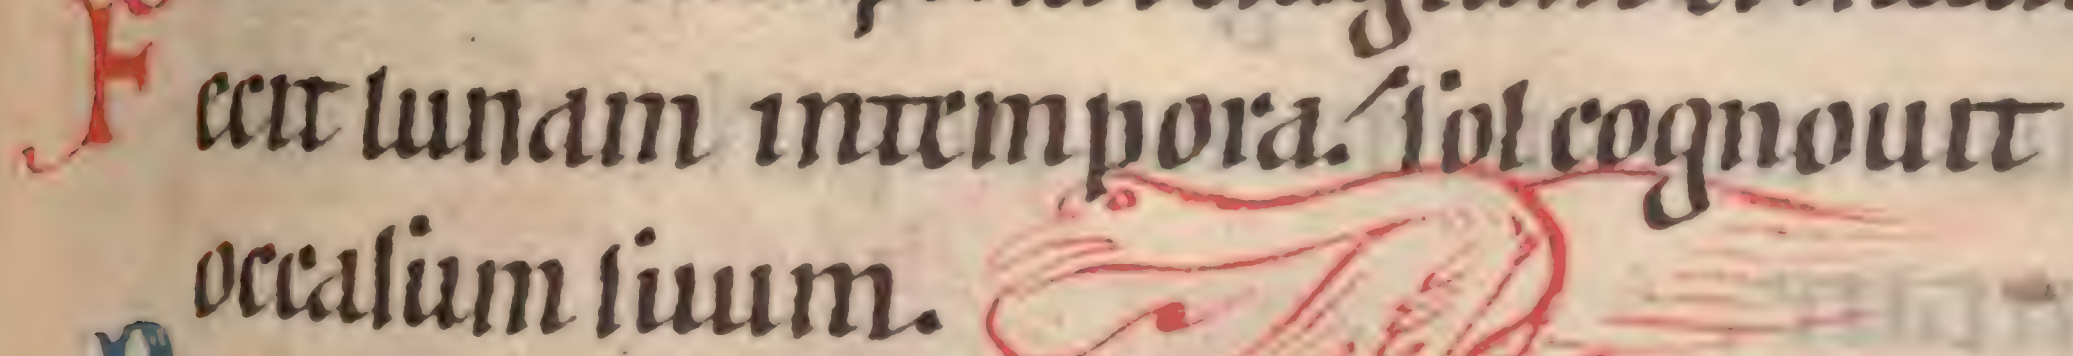 Fecit lunam in tempora. sol cognouit
occasum suum.